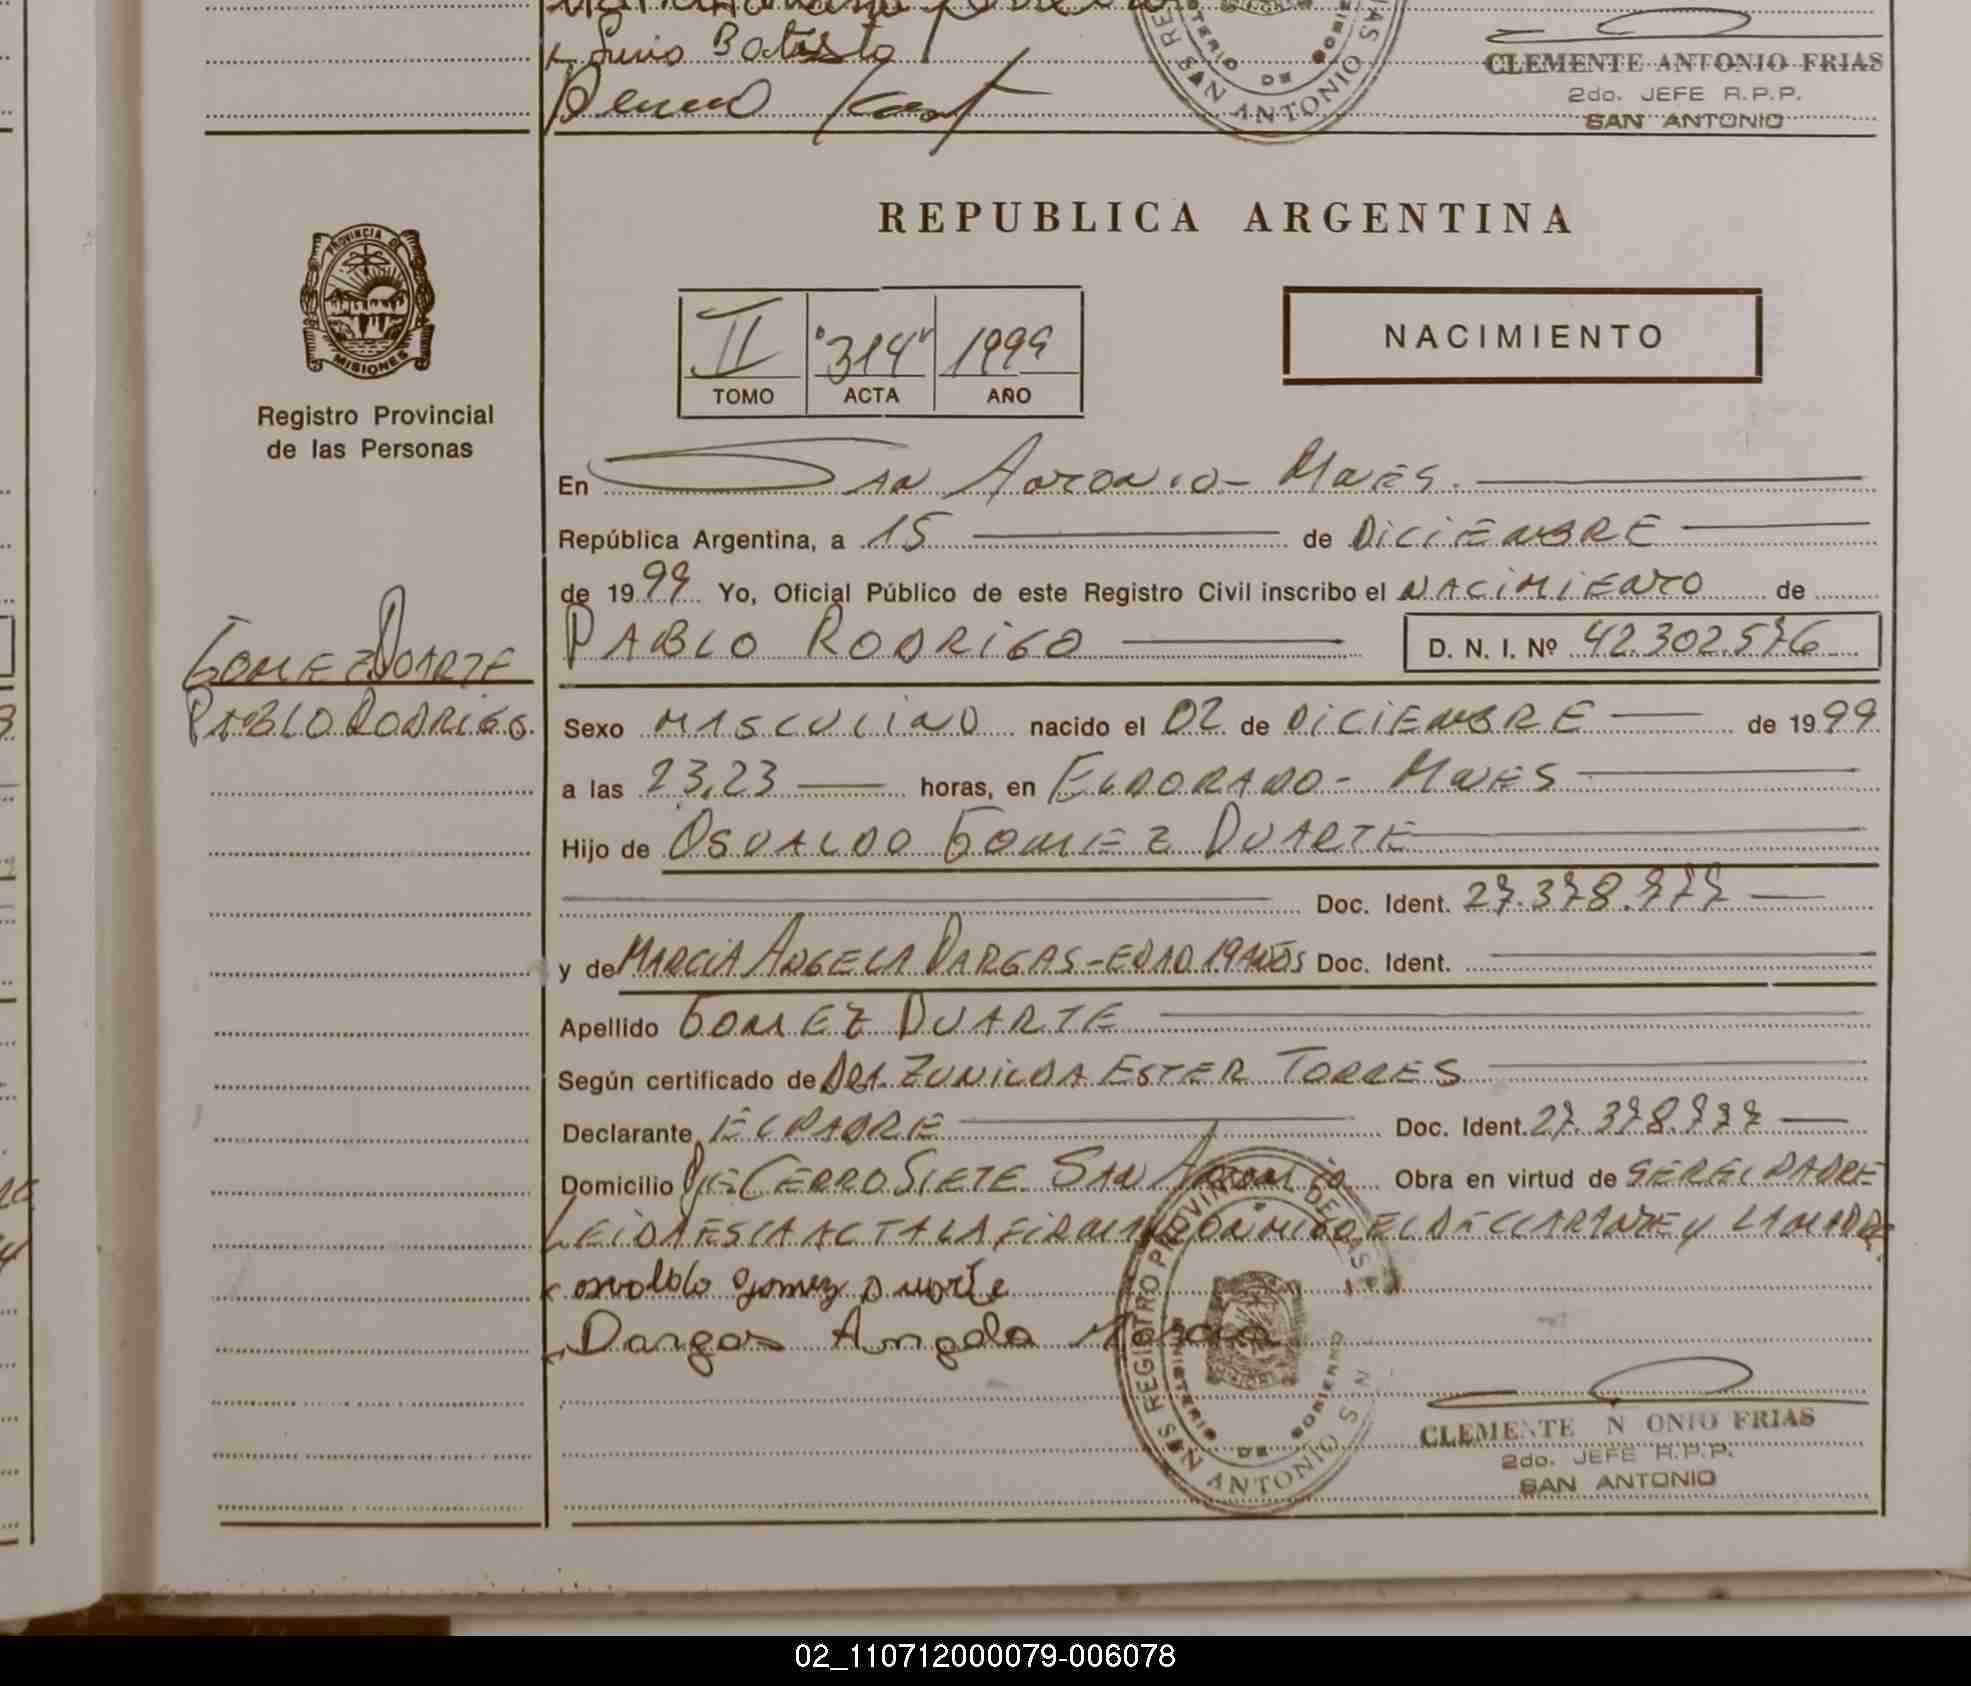 Batista
CLEMENTE ANTONIO FRIAS
2do. JEFE R.P.P.
SAN ANTONIO
REPUBLICA ARGENTINA
PROVINCIA DE
MISIONES
Registro Provincial
de las Personas
II "314" 1999
TOMO ACTA AÑO
NACIMIENTO
En SAN ANTONIO - Mnes.
República Argentina, a 15 de DICIEMBRE
de 1999 Yo, Oficial Público de este Registro Civil inscribo el NACIMIENTO de
PABLO RODRIGO D. N. I. Nº 42.302.576
GOMEZ DUARTE
PABLO RODRIGO.
Sexo MASCULINO nacido el 02 de DICIEMBRE de 1999
a las 23,23 horas, en ELDORADO - MNES
Hijo de OSVALDO GOMEZ DUARTE
Doc. Ident. 27.378.777
y de MARCIA ANGELA DARGAS - EDAD 19 AÑOS Doc. Ident.
Apellido GOMEZ DUARTE
Según certificado de DRA. ZUNILDA ESTER TORRES
Declarante EL PADRE Doc. Ident. 27.378.777
Domicilio PJE CERRO SIETE SAN ANTONIO Obra en virtud de SER EL PADRE
LEIDA ESTA ACTA LA FIRMAN CONMIGO EL DECLARANTE y LA MADRE.
x osvaldo gomez Duarte
x Dargas Angela Marcia
REGISTRO PROVINCIAL DE LAS PERSONAS
MINISTERIO DE GOBIERNO
SAN ANTONIO
CLEMENTE N ONIO FRIAS
2do. JEFE R.P.P.
SAN ANTONIO
02_110712000079-006078